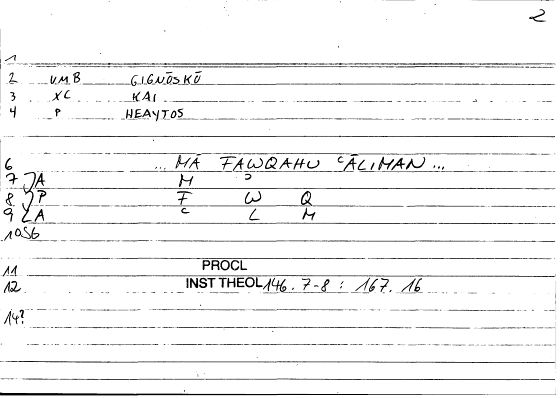 2
1
2 VMB GIGNŌSKŌ
3 XC KAI
4 P HEAYTOS
6 ... MĀ FAWQAHU ʿĀLIMAN ...
7 A M ʾ
8 P F W Q
9 A ʿ L M
10 S6
11 PROCL
12 INST THEOL 146. 7-8 : 167. 16
14?